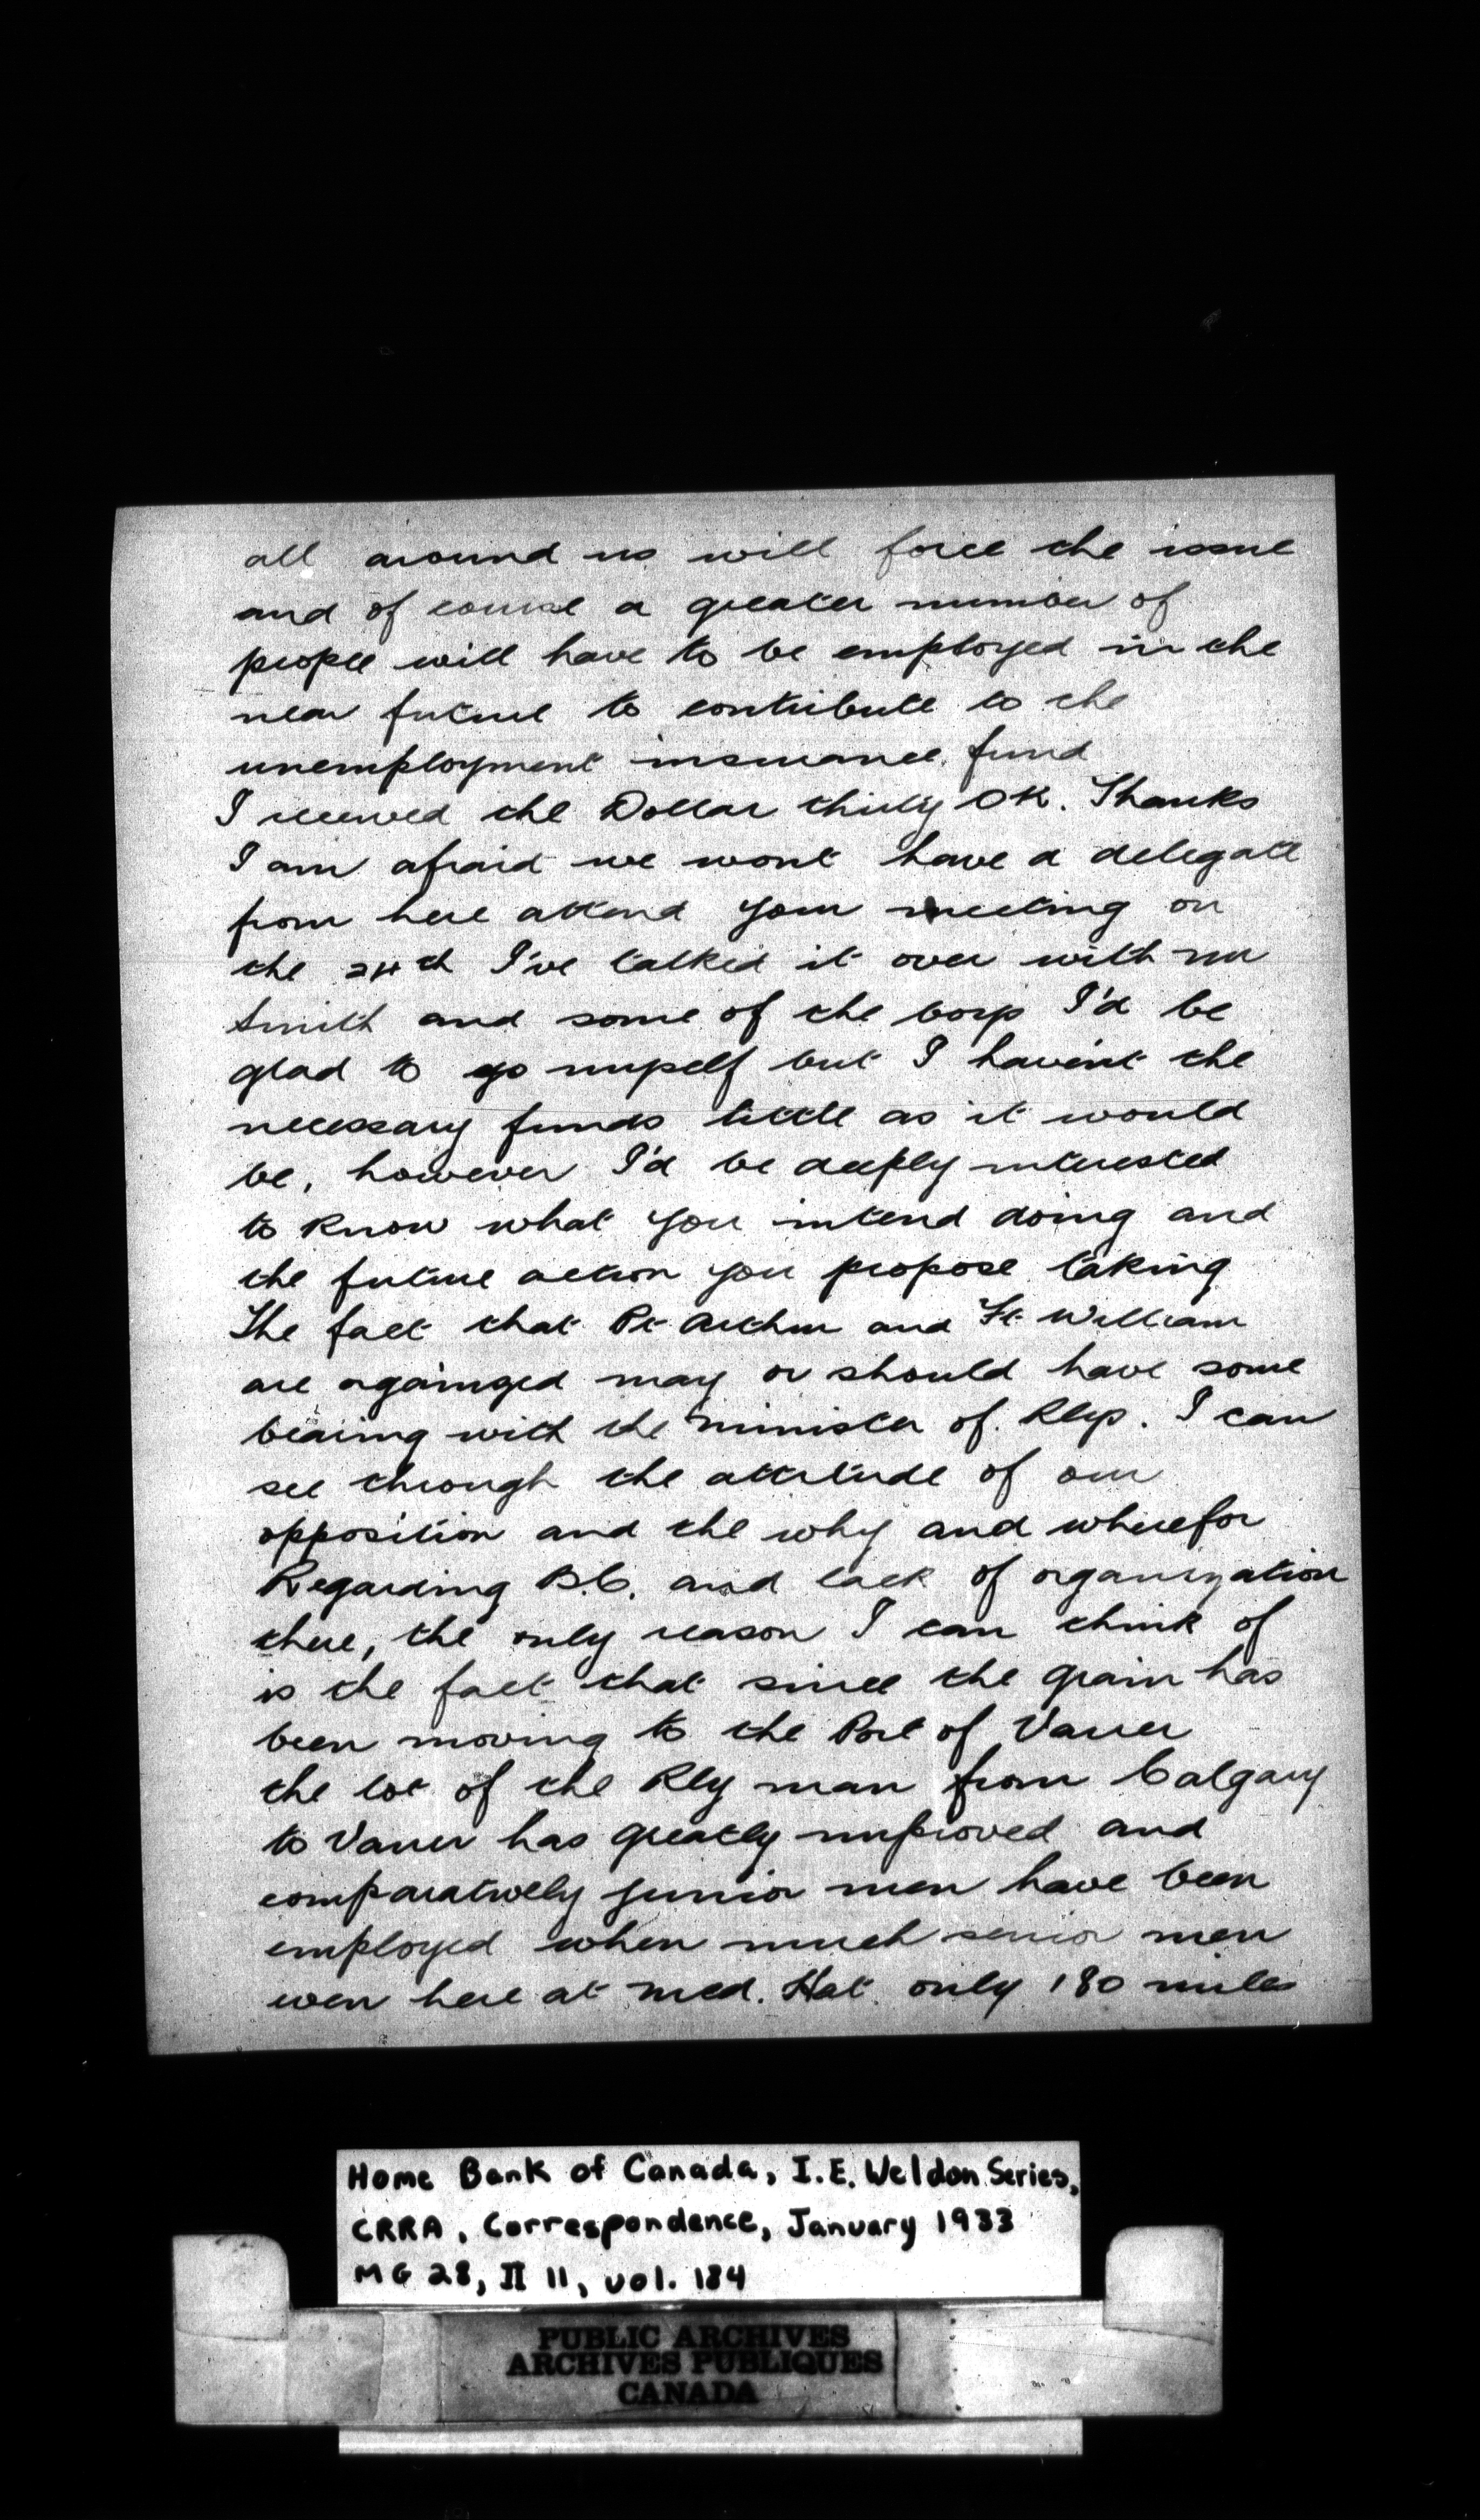 all around us will force the issue
and of course a greater number of
people will have to be employed in the
near future to contribute to the
unemployment insurance. fund
I received the Dollar thirty OK. Thanks
I am afraid we wont have a delegate
from here attend your meeting on
the 24th I've talked it over with Mr
Smith and some of the boys I'd be
glad to go myself but I haven't the
necessary funds little as it would
be, however I'd be deeply interested
to know what you intend doing and
the future action you propose taking
The fact that Pt Arthur and Ft William
are orgainzed may or should have some
bearing with the Minister of. Rlys. I can
see through the attitude of our
opposition and the why and wherefor
Regarding B.C. and lack of organization
there, the only reason I can think of
is the fact that since the grain has
been moving to the Port of Vancr
the lot of the Rly man from Calgary
to Vancr has greatly improved and
comparatively junior men have been
employed when much senior men
even here at Med. Hat. only 180 miles
Home Bank of Canada, I.E. Weldon Series,
CRRA, Correspondence, January 1933
MG 28, II 11, vol. 184
PUBLIC ARCHIVES
ARCHIVES PUBLIQUES
CANADA